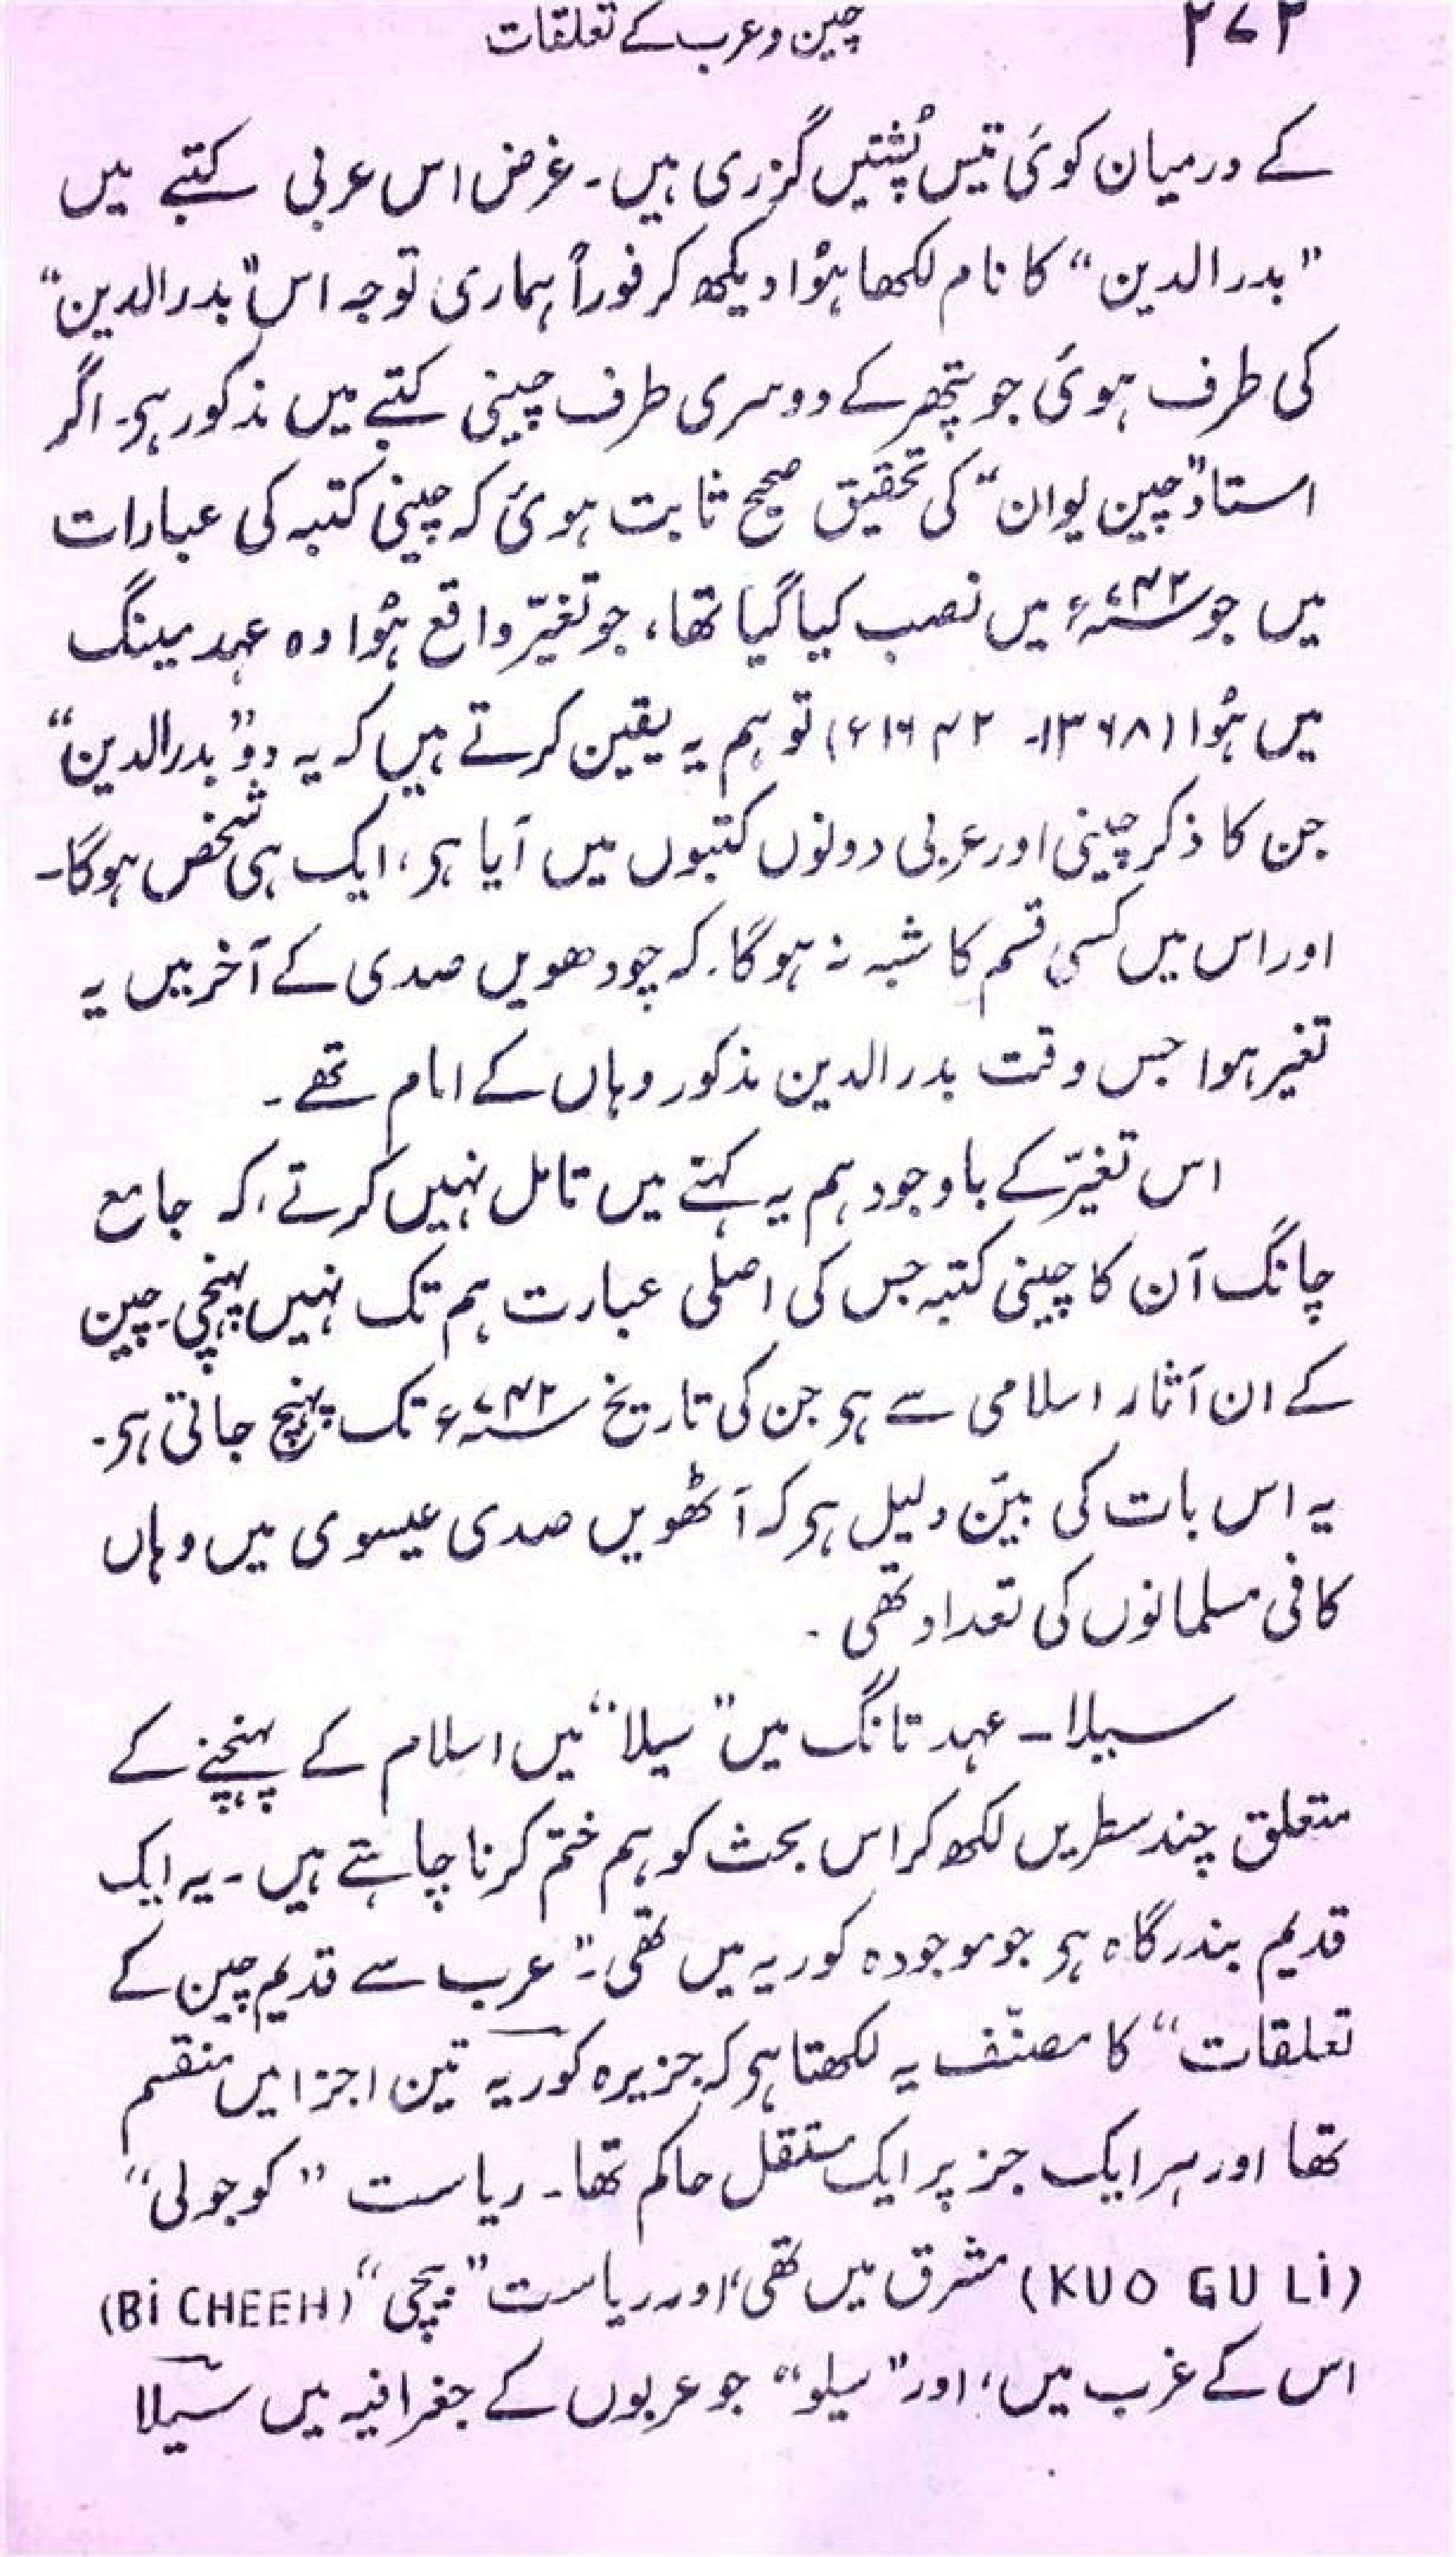 ۲۷۲ چین و عرب کے تعلقات
کے درمیان کوئی تیس پُشتیں گزری ہیں۔ غرض اس عربی کتبے میں
”بدر الدین“ کا نام لکھا ہُوا دیکھ کر فوراً ہماری توجہ اس ”بدر الدین“
کی طرف ہوئی جو پتھر کے دوسری طرف چینی کتبے میں مذکور ہی۔ اگر
استاد ”چین یوان“ کی تحقیق صحیح ثابت ہوئی کہ چینی کتبہ کی عبارات
میں جو ۷۴۲ء میں نصب کیا گیا تھا، جو تغیّر واقع ہُوا وہ عہد مینگ
میں ہُوا (۱۳۶۸۔ ۱۶۴۲ء) تو ہم یہ یقین کرتے ہیں کہ یہ دو ”بدر الدین“
جن کا ذکر چینی اور عربی دونوں کتبوں میں آیا ہی، ایک ہی شخص ہوگا۔
اور اس میں کسی قسم کا شبہ نہ ہوگا۔ کہ چودھویں صدی کے آخر میں یہ
تغیر ہوا جس وقت بدر الدین مذکور وہاں کے امام تھے۔
اس تغیّر کے باوجود ہم یہ کہتے میں تامل نہیں کرتے، کہ جامع
چانگ آن کا چینی کتبہ جس کی اصلی عبارت ہم تک نہیں پہنچی۔ چین
کے ان آثار اسلامی سے ہی جن کی تاریخ ۷۴۲ء تک پہنچ جاتی ہی۔
یہ اس بات کی بیّن دلیل ہی کہ آٹھویں صدی عیسوی میں وہاں
کافی مسلمانوں کی تعداد تھی۔
سیلا۔ عہد تانگ میں ”سیلا“ میں اسلام کے پہنچنے کے
متعلق چند سطریں لکھ کر اس بحث کو ہم ختم کرنا چاہتے ہیں۔ یہ ایک
قدیم بندرگاہ ہی جو موجودہ کوریہ میں تھی۔ ”عرب سے قدیم چین کے
تعلقات“ کا مصنّف یہ لکھتا ہی کہ جزیرہ کوریہ تین اجزا میں منقسم
تھا اور ہر ایک جز پر ایک مستقل حاکم تھا۔ ریاست ”کوجولی“
(KUO GU Li) مشرق میں تھی، اور ریاست ”بیچی“ (Bi CHEEH)
اس کے غرب میں، اور ”سیلو“ جو عربوں کے جغرافیہ میں سیلا